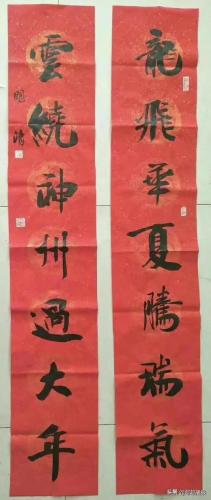 龍飛華夏騰瑞氣
雲繞神州過大年